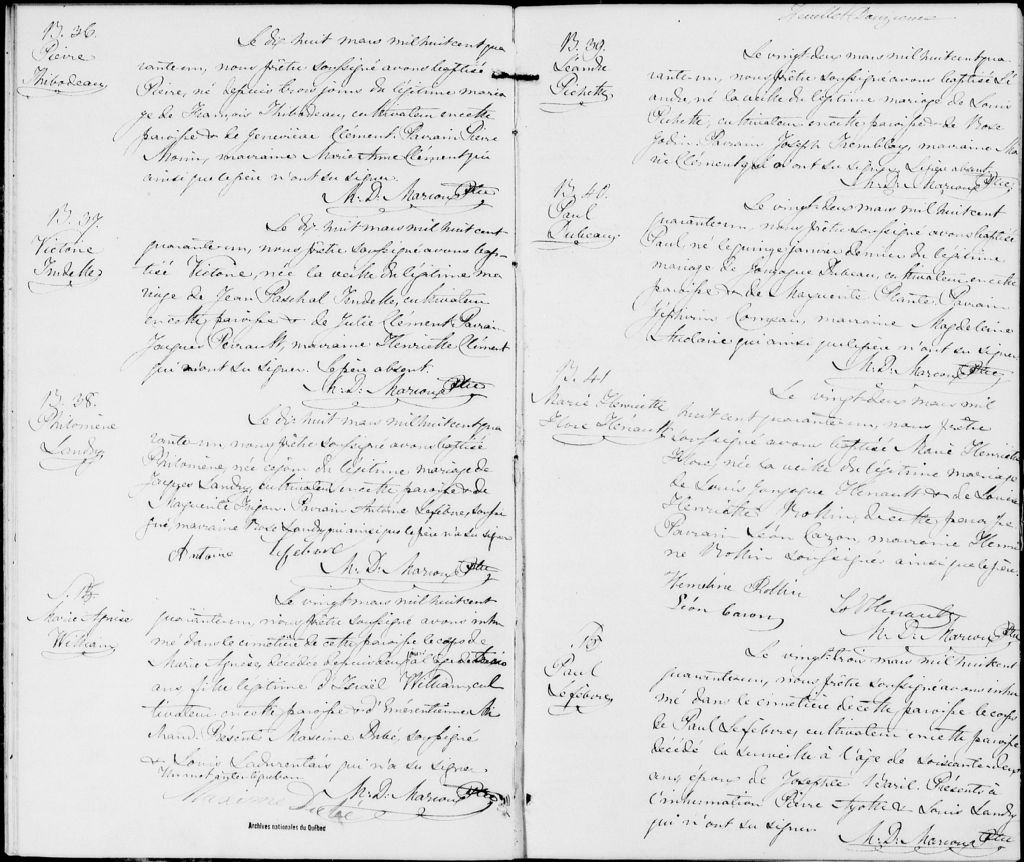 B. 36.
Pierre
Thibodeau
Le dix huit mars mil huit cent qua
rante un, nous prêtre soussigné avons baptisé
Pierre, né depuis trois jours du légitime maria
ge de François Thibodeau, cultivateur en cette
paroisse & de Geneviève Clément. Parrain Pierre
Morin, marraine Marie Anne Clément qui
ainsi que le père n'ont su signer.
M. D. Marcoux Ptre
B. 37.
Victoire
Trudelle
Le dix huit mars mil huit cent
quarante un, nous prêtre soussigné avons bap-
tisé Victoire, née la veille du légitime ma
riage de Jean Paschal Trudelle, cultivateur
en cette paroisse & de Julie Clément. Parrain
Jacques Perrault, marraine Henriette Clément
qui n'ont su signer. Le père absent.
M. D. Marcoux Ptre
B. 38.
Philomène
Landry
Le dix huit mars mil huit cent qua
rante un, nous prêtre soussigné avons baptisé
Philomène, née ce jour du légitime mariage de
Jacques Landry, cultivateur en cette paroisse & de
Marguerite Trépan. Parrain Antoine Lefebvre, soussi
gné, marraine Rose Landry qui ainsi que le père n'a su signer
Antoine Lefebvre
M. D. Marcoux Ptre
S. 15
Marie Agnèse
William
Le vingt mars mil huit cent
quarante un, nous prêtre soussigné avons inhu
mé dans le cimetière de cette paroisse le corps de
Marie Agnèse, décédée depuis deux jours à l'âge de trois
ans fille légitime d'Israël William, cul
tivateur en cette paroisse & d'Emérentienne Mi
chaud. Présents Maxime Dubé, soussigné
& Louis Ladurentais qui n'a su signer.
Un mot rayé est bon
M. D. Marcoux Ptre
Maxime Dubé
Archives nationales du Québec
Feuillet onzième
B. 39.
Léandre
Pichette
Le vingt deux mars mil huit cent qua
rante un, nous prêtre soussigné avons baptisé Lé
andre, né la veille du légitime mariage de Louis
Pichette, cultivateur en cette paroisse & de Rose
Godin. Parrain Joseph Tremblay, marraine Ma
rie Clément qui n'ont su signer. Le père absent.
M. D. Marcoux Ptre
B. 40.
Paul
Dubeau
Le vingt deux mars mil huit cent
quarante un, nous prêtre soussigné avons baptisé
Paul, né le quinze janvier dernier du légitime
mariage de Gonzague Dubeau, cultivateur en cette
paroisse & de Marguerite Plante. Parrain
Zéphirin Comeau, marraine Magdeleine
qui ainsi que le père n'ont su signer.
M. D. Marcoux Ptre
B. 41
Marie Henriette
Flore Henault
Le vingt deux mars mil
huit cent quarante un, nous prêtre
soussigné avons baptisé Marie Henriette
Flore, née la veille du légitime mariage
de Louis Gonzague Henault & de Louise
Henriette Rottin, de cette paroisse.
Parrain Léon Caron, marraine Herme
ne Rottin soussignés ainsi que le père.
Hermeline Rottin
Léon Caron
L. G. Henault
M. D. Marcoux Ptre
S. 15
Paul
Lefebvre
Le vingt trois mars mil huit cent
quarante un, nous prêtre soussigné avons inhu
mé dans le cimetière de cette paroisse le corps
de Paul Lefebvre, cultivateur en cette paroisse
décédé la surveille à l'âge de soixante deux
ans époux de Josephte Baril. Présents à
l'inhumation Pierre Ayotte & Louis Landry
qui n'ont su signer.
M. D. Marcoux Ptre